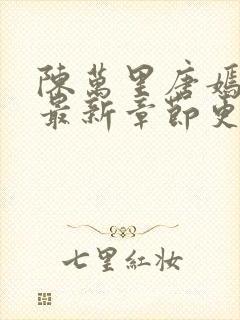 陳萬里唐嫣
最新章節更
七里紅妝